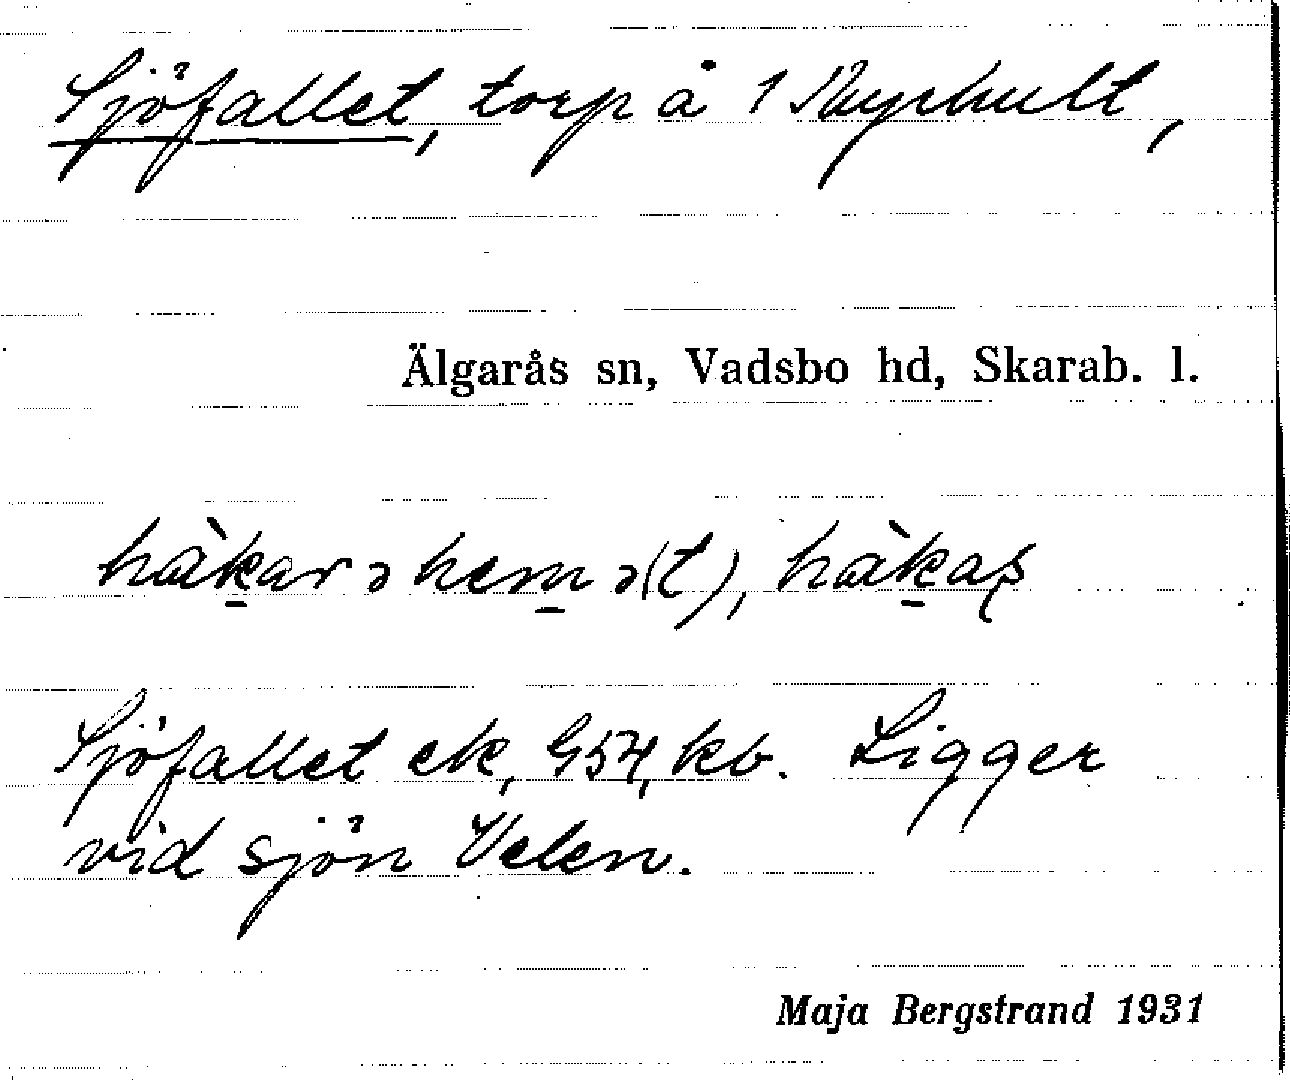 Sjöfallet, torp å 1 Myrhult,
Älgarås sn, Vadsbo hd, Skarab. l.
hàkarəhemə(t), hàkaʂ
Sjöfallet ek, G54, kb. Ligger
vid sjön Velen.
Maja Bergstrand 1931